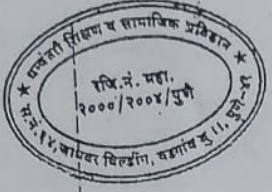 ★ धन्वंतरी शिक्षण व सामाजिक प्रतिष्ठान ★
रजि.नं. महा.
२०००/२००४/पुणे
स.नं.१४, जाधवर बिल्डींग, वडगांव बु॥, पुणे-४१